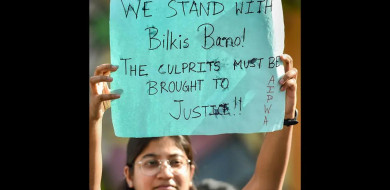 WE STAND WITH
Bilkis Bano!
THE CULPRITS MUST BE
BROUGHT TO
JUSTICE!!
AIPWA